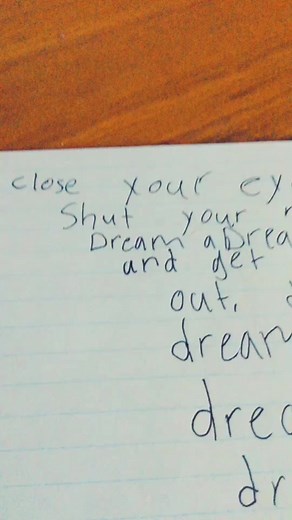 close your ey
Shut your
Dream a Drea
and get
out.
dream
drea
dr